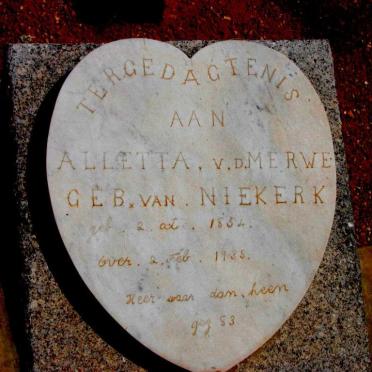 TERGEDAGTENIS
AAN
ALLETTA. V.D. MERWE
GEB. VAN. NIEKERK
geb. 2. oct. 1854.
Over. 2. Feb. 1938.
Heer waar dan heen
gez 83